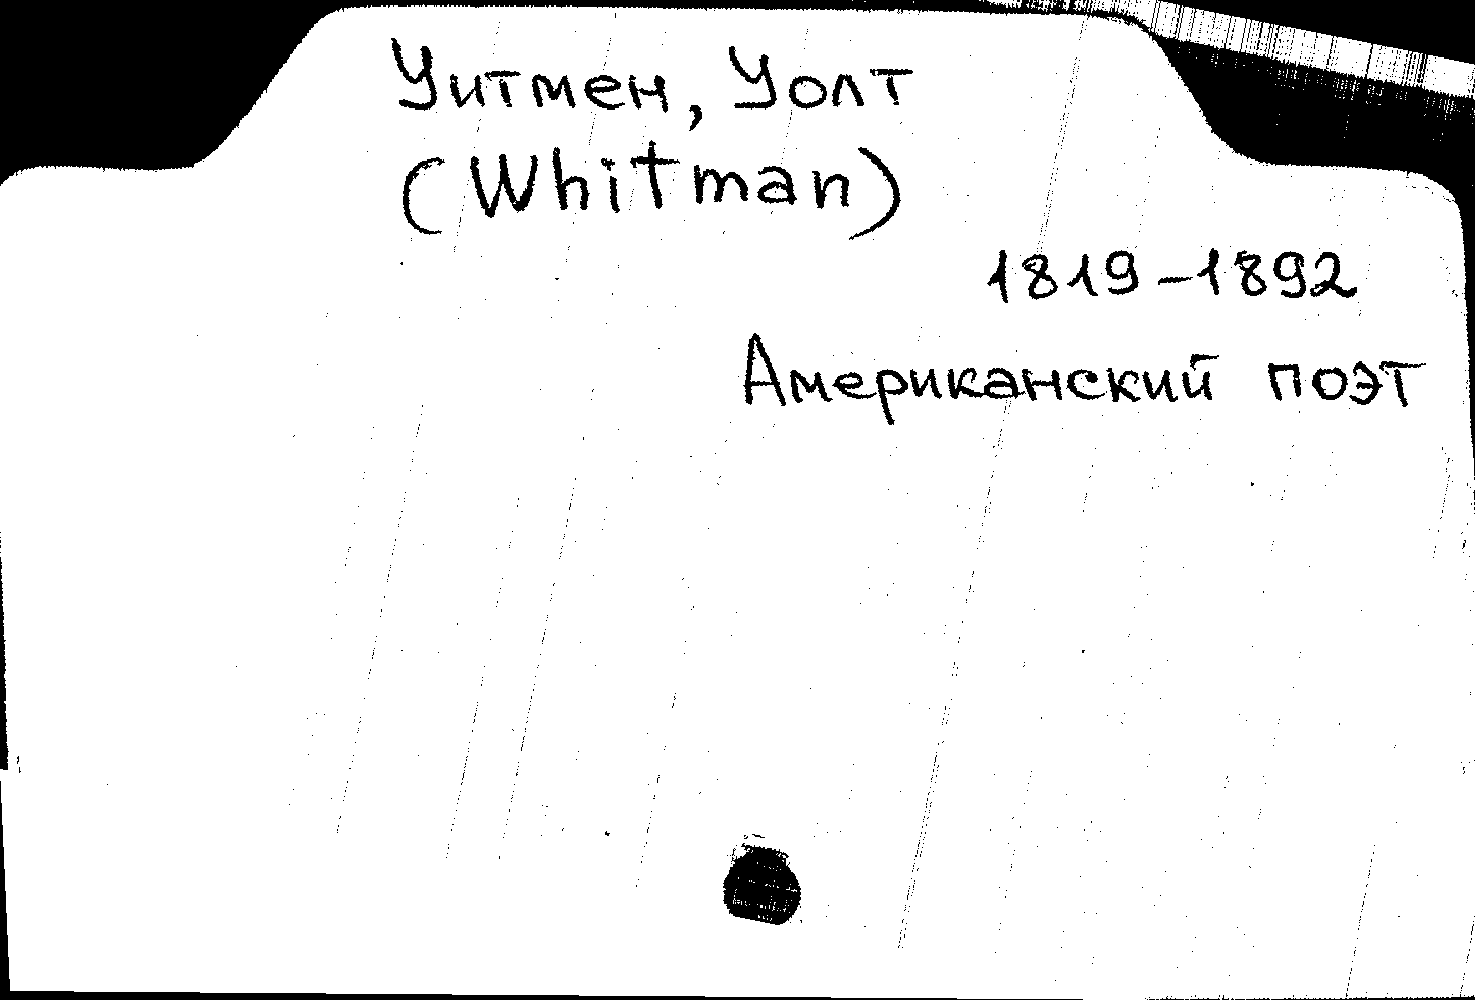 Уитмен, Уолт
(Whitman)
1819-1892
Американский поэт